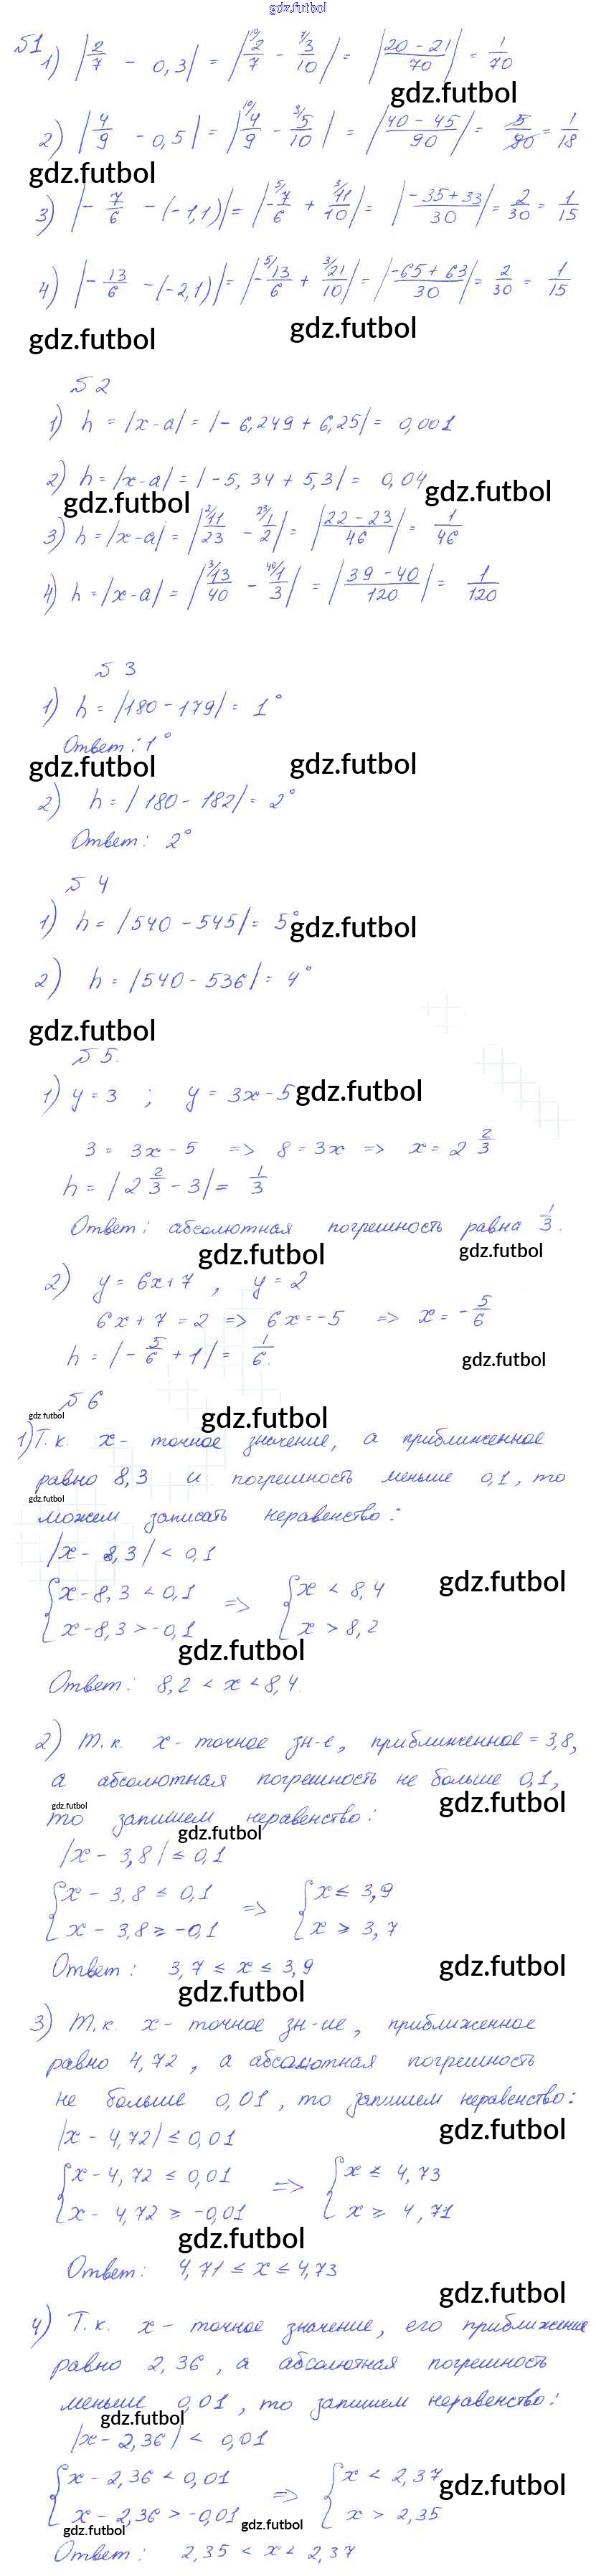 gdz.futbol
№1
1) |2/7 - 0,3| = |¹⁰/2/7 - ⁷/3/10| = |(20 - 21)/70| = 1/70
gdz.futbol
2) |4/9 - 0,5| = |¹⁰/4/9 - ⁹/5/10| = |(40 - 45)/90| = 5/90 = 1/18
gdz.futbol
3) |- 7/6 - (-1,1)| = |-⁵/7/6 + ³/11/10| = |(-35 + 33)/30| = 2/30 = 1/15
4) |- 13/6 - (-2,1)| = |-⁵/13/6 + ³/21/10| = |(-65 + 63)/30| = 2/30 = 1/15
gdz.futbol
gdz.futbol
№2
1) h = |x-a| = |- 6,249 + 6,25| = 0,001
2) h = |x-a| = |-5,34 + 5,3| = 0,04
gdz.futbol
gdz.futbol
3) h = |x-a| = |²/11/23 - ²³/1/2| = |(22 - 23)/46| = 1/46
4) h = |x-a| = |³/13/40 - ⁴⁰/1/3| = |(39 - 40)/120| = 1/120
№ 3
1) h = |180 - 179| = 1°
Ответ: 1°
gdz.futbol
gdz.futbol
2) h = |180 - 182| = 2°
Ответ: 2°
№ 4
1) h = |540 - 545| = 5°
gdz.futbol
2) h = |540 - 536| = 4°
gdz.futbol
№ 5.
1) y = 3 ; y = 3x - 5
gdz.futbol
3 = 3x - 5 => 8 = 3x => x = 2 2/3
h = |2 2/3 - 3| = 1/3
Ответ: абсолютная погрешность равна 1/3.
gdz.futbol
gdz.futbol
2) y = 6x+7 , y = 2
6x + 7 = 2 => 6x = -5 => x = - 5/6
h = |- 5/6 + 1| = 1/6.
gdz.futbol
№ 6
gdz.futbol
gdz.futbol
1) Т.к. x - точное значение, а приближенное
равно 8,3 и погрешность меньше 0,1, то
gdz.futbol
можем записать неравенство:
|x - 8,3| < 0,1
{ x - 8,3 < 0,1 => { x < 8,4
gdz.futbol
x - 8,3 > -0,1 x > 8,2
gdz.futbol
Ответ: 8,2 < x < 8,4.
2) Т.к. x - точное зн-е, приближенное = 3,8,
а абсолютная погрешность не больше 0,1,
gdz.futbol
gdz.futbol
то запишем неравенство:
gdz.futbol
|x - 3,8| ≤ 0,1
{ x - 3,8 ≤ 0,1 => { x ≤ 3,9
x - 3,8 ≥ -0,1 x ≥ 3,7
Ответ: 3,7 ≤ x ≤ 3,9
gdz.futbol
gdz.futbol
3) Т.к. x - точное зн-ие, приближенное
равно 4,72, а абсолютная погрешность
не больше 0,01, то запишем неравенство:
gdz.futbol
|x - 4,72| ≤ 0,01
{ x - 4,72 ≤ 0,01 => { x ≤ 4,73
x - 4,72 ≥ -0,01 x ≥ 4,71
gdz.futbol
Ответ: 4,71 ≤ x ≤ 4,73
gdz.futbol
4) Т.к. x - точное значение, его приближение
равно 2,36, а абсолютная погрешность
меньше 0,01, то запишем неравенство:
gdz.futbol
|x - 2,36| < 0,01
{ x - 2,36 < 0,01 => { x < 2,37
gdz.futbol
x - 2,36 > -0,01 x > 2,35
gdz.futbol
gdz.futbol
Ответ: 2,35 < x < 2,37